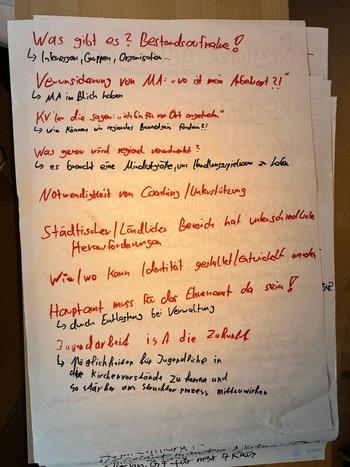 Was gibt es? Bestandsaufnahme!
↳ Interessen, Gruppen, Organisation...
Verunsicherung von MA: "wo ist mein Arbeitsort?!"
↳ MA im Blick haben
KV'ler die sagen: "ich bin für vor Ort angetreten"
↳ wie können wir regionales Bewusstsein fördern?!
Was genau wird regional verantwortet?
↳ es braucht eine Mindestgröße, um Handlungsspielraum zu haben
Notwendigkeit von Coaching/Unterstützung
Städtischer/Ländlicher Bereich hat unterschiedliche
Herausforderungen
Wie/wo kann Identität gestaltet/entwickelt werden
Hauptamt muss für das Ehrenamt da sein!
↳ durch Entlastung bei Verwaltung
Jugendarbeit ist die Zukunft
↳ Möglichkeiten für Jugendliche in
die Kirchenvorstände zu kommen und
so stärker am Strukturprozess mitzuwirken